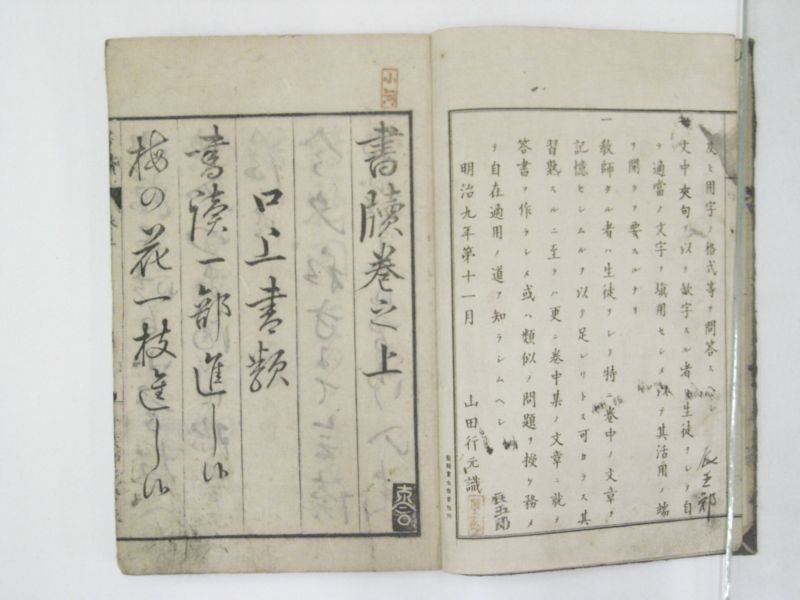 及ヒ用字ノ格式等ヲ問答スヘシ
文中夾句ヲ以テ歓字スル者ハ生徒ヲシテ自
ラ適當ノ文字ヲ填用セシメ以テ其活用ノ端
ヲ開クヲ要スルナリ
一教師タル者ハ生徒ヲシテ特ニ卷中ノ文章ヲ
記憶セシムルヲ以テ足レリトス可カラス其
習熟スルニ至テハ更ニ卷中某ノ文章ニ就テ
答書ヲ作ラシメ或ハ類似ノ問題ヲ授ケ務メ
テ自在適用ノ道ヲ知ラシムヘシ
明治九年第十一月 山田行元識
辰五郎
辰五郎
小河
書牘卷之上
口上書類
書牘一部進し候
梅の花一枝進し候